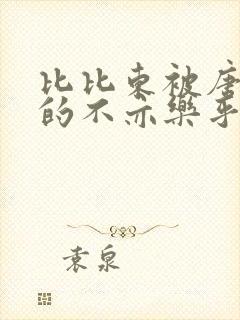 比比东被唐
的不亦乐乎
袁泉